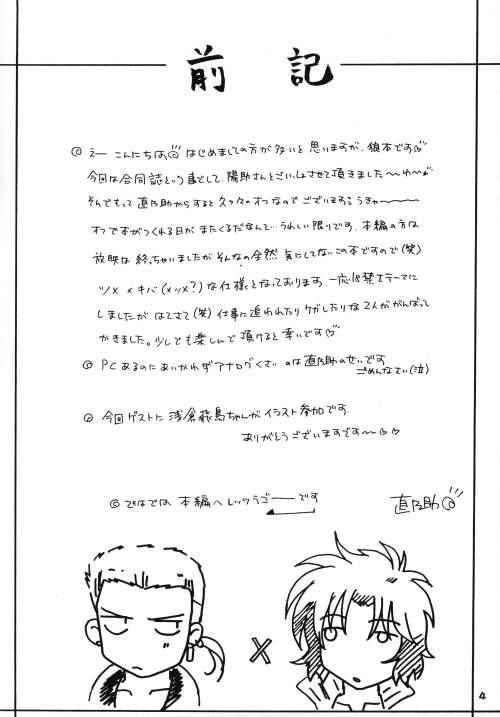 前記
◎ えー こんにちは◎ はじめましての方が多いと思いますが、狼本です
今回は合同誌という事でして、陽助さんとごいっしょさせて頂きました〜わ〜
そんでもって直乃助からすると久々のオフなのでございますようきゃ〜〜〜
オフで本がつくれる日がまたくるだなんて…うれしい限りです。本編の方は
放映は終っちゃいましたがそんなの全然気にしてないこの本ですので(笑)
ヅメ × キバ (×ヅメ?) な仕様となっております。一応18禁をテーマに
しましたが はてさて(笑) 仕事に追われたりケガしたりな2人ががんばって
かきました。少しでも楽しんで頂けると幸いです
◎ PCあるのにあいかわらずアナログくさいのは直乃助のせいです
ごめんなさい(泣)
◎ 今回ゲストに 浅倉飛鳥ちゃんが イラスト参加です
ありがとうございますです〜
◎ でなでは 本編へレッツラゴーーです
直乃助◎
×
4